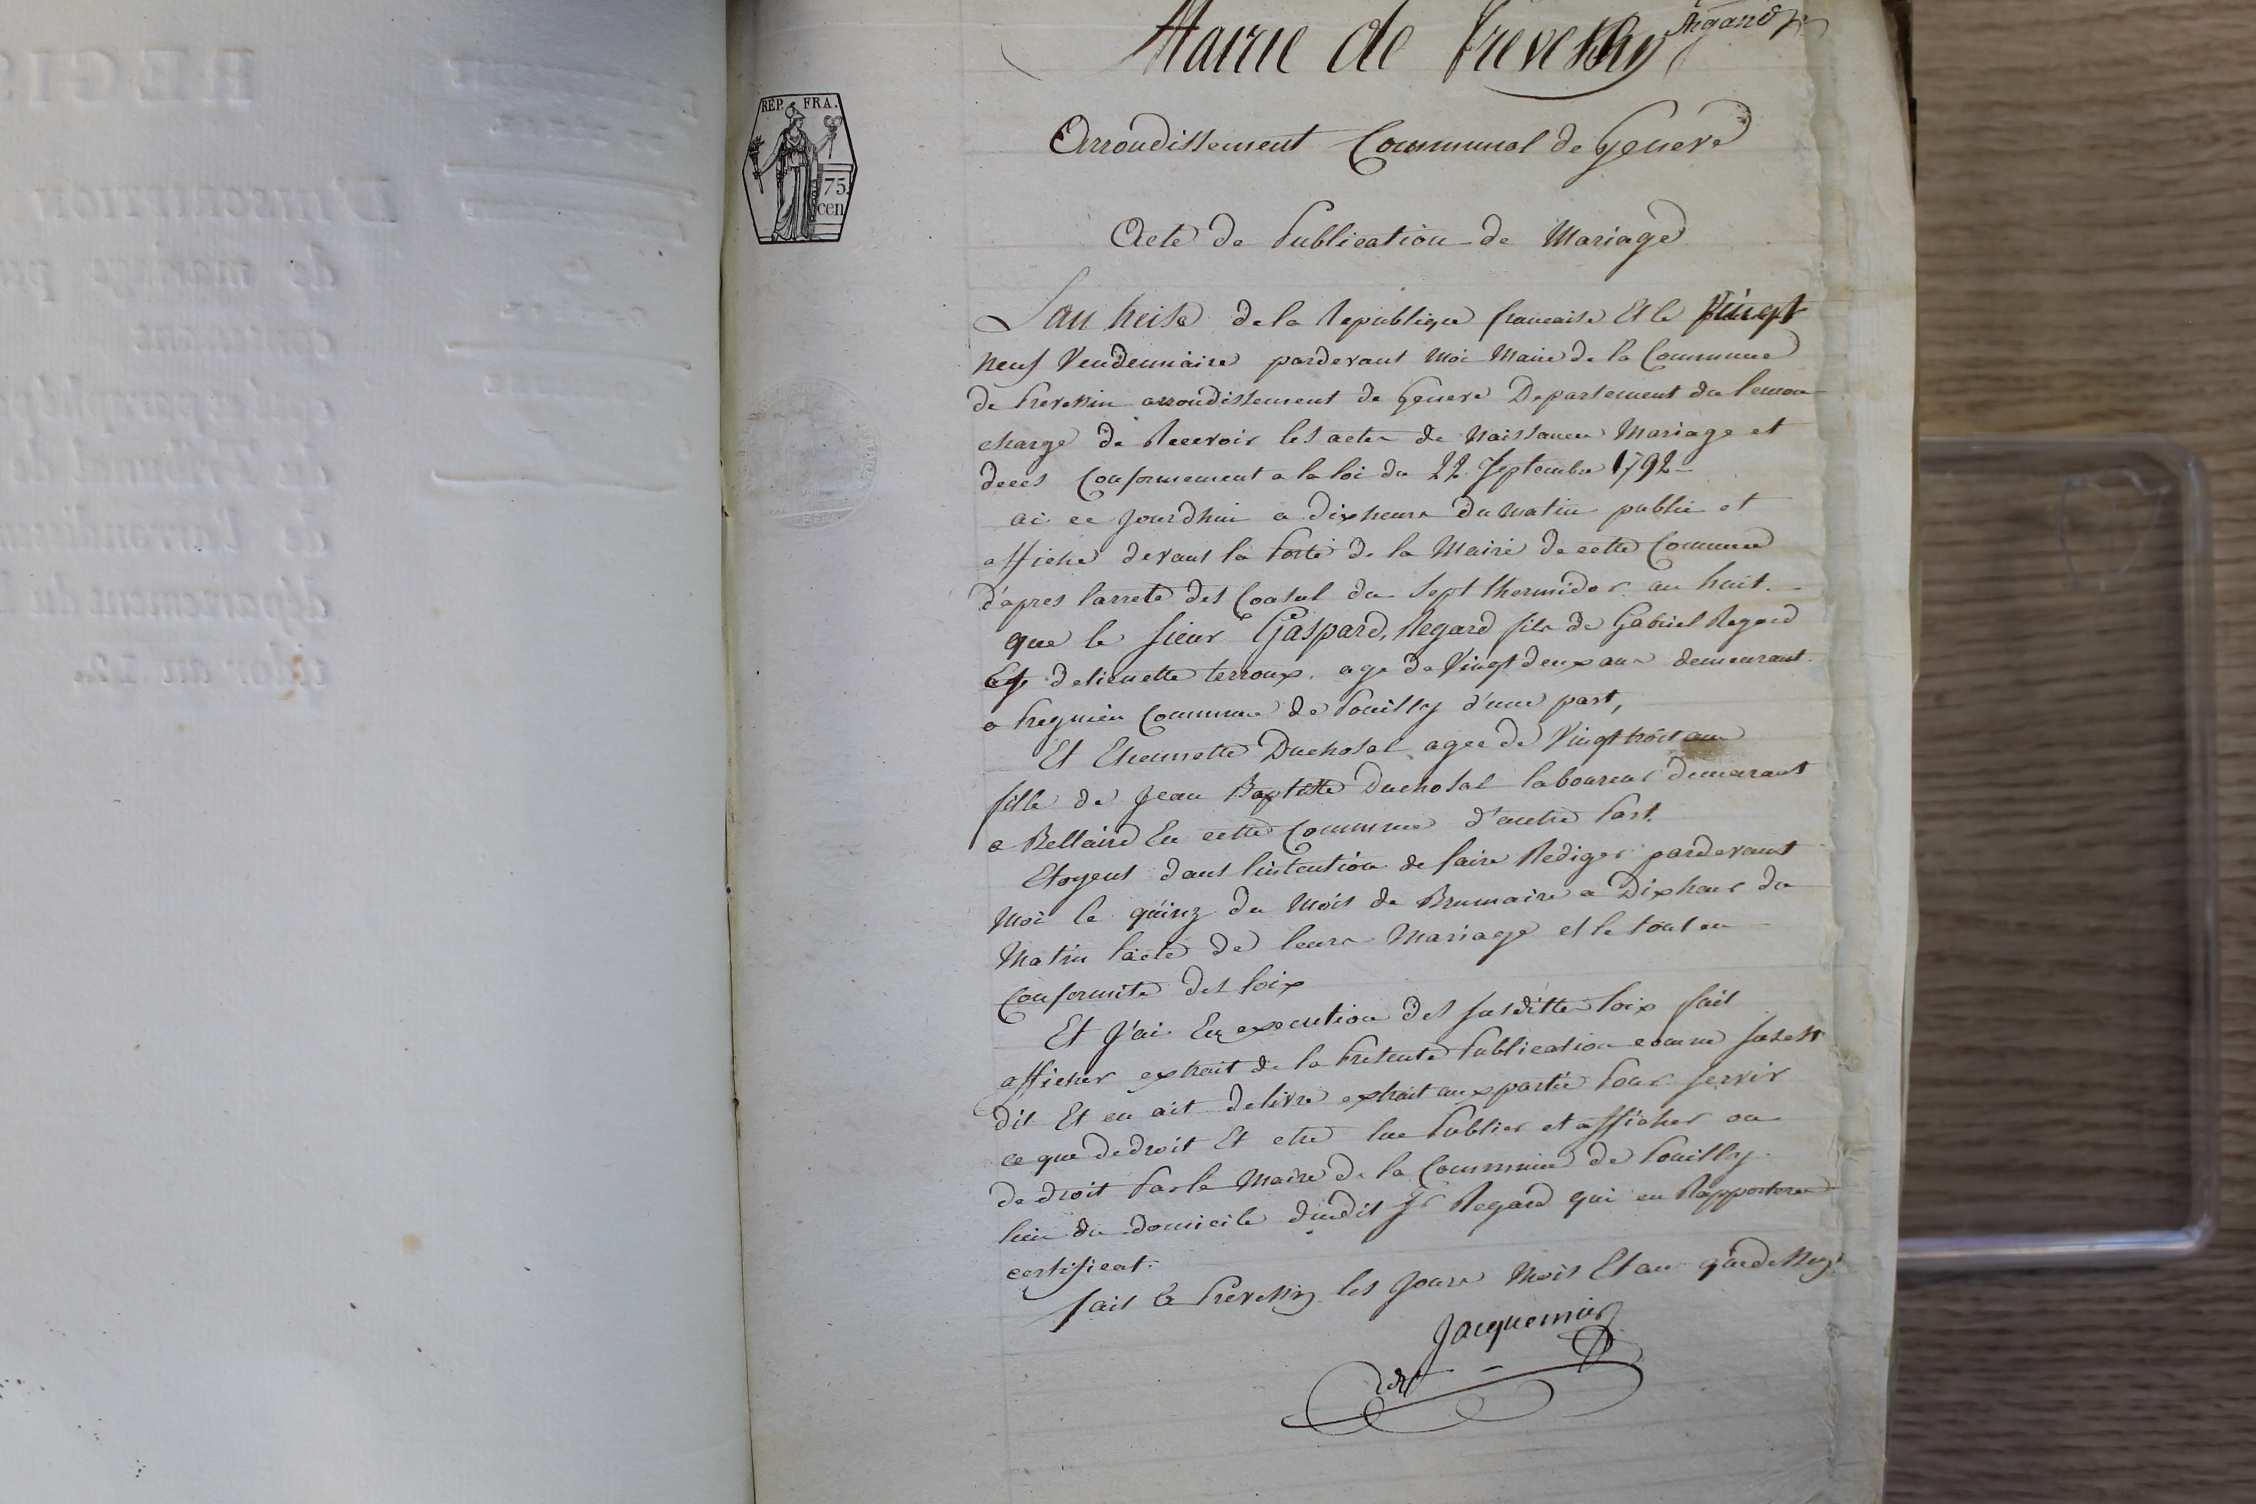 REGIS
D'INSCRIPTION
de mariage pu
de l'arrondisse
département du
idor an 12.
REP. FRA.
75.
cen
Argand
Mairie de Prevessin
Arrondissement Communal de Geneve
Acte de Publication de Mariage
Lan treise de la Republique francaise Et le Vingt
neuf Vendemiaire pardevant moi Maire de la Commune
de Prevessin arrondissement de Geneve Departement du leman
charge de Recevoir les actes de Naissance Mariage et
deces Conformement a la loi du 22 Septembre 1792
ai ce jourdhui a dix heures du matin publie et
affiche devant la Porte de la Mairie de cette Commune
d'apres larrete des Consul du Sept thermidor an huit.
que le Sieur Gaspard, Regard fils de Gabriel Regard
Et detienette terroux. age de Vingt deux ans demeurant
a Pregnin Commune de Pouilly d'une part,
Et Etiennette Duchosal agee de Vingt trois ans
fille de Jean Baptiste Duchosal laboureur demeurant
a Bellaire En cette Commune d'autre Part.
Etoyent dans lintention de faire Rediger pardevant
moi le quinz du Mois de Brumaire a Dix heur du
Matin lacte de leurs Mariage et le tout en
Conformite des loix
Et J'ai En execution des Susditte loix fait
afficher extrait de la Presente Publication comme sus est
dit Et en ait delivre extrait aux partie Pour servir
ce que de droit Et etre lue Publier et afficher ou
de droit Par le Maire de la Commune de Pouilly
lieu du domicile dudit Sr Regard qui en Rapportera
certificat.
fait a Prevessin les Jours Mois Et an que dessus
Jacquemier